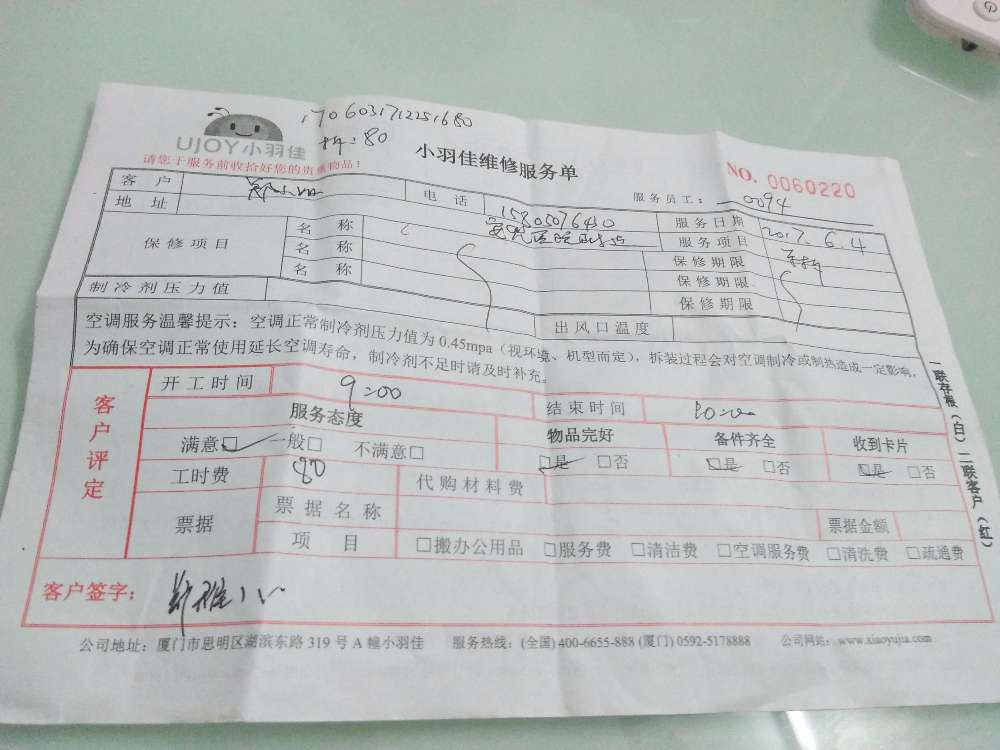 1706031712251680
UJOY小羽佳
80
小羽佳维修服务单
NO. 0060220
请您于服务前收拾好您的贵重物品！
服务员工： 0094
客 户
电 话
服务日期 2017.6.4
地 址
服务项目
保修项目
名 称
保修期限
名 称
保修期限
名 称
保修期限
制冷剂压力值
出风口温度
空调服务温馨提示：空调正常制冷剂压力值为 0.45mpa（视环境、机型而定），拆装过程会对空调制冷或制热造成一定影响，
为确保空调正常使用延长空调寿命，制冷剂不足时请及时补充。
客户评定
开工时间 9:00
结束时间 10:00
服务态度
物品完好
备件齐全
收到卡片
满意□ 一般□ 不满意□
□是 □否
□是 □否
□是 □否
工时费 80
代购材料费
票据
票据名称
票据金额
项 目
□搬办公用品 □服务费 □清洁费 □空调服务费 □清洗费 □疏通费
客户签字：
一联存根（白） 二联客户（红）
公司地址：厦门市思明区湖滨东路 319 号 A 幢小羽佳 服务热线：(全国) 400-6655-888 (厦门) 0592-5178888 公司网站：www.xiaoyujia.com